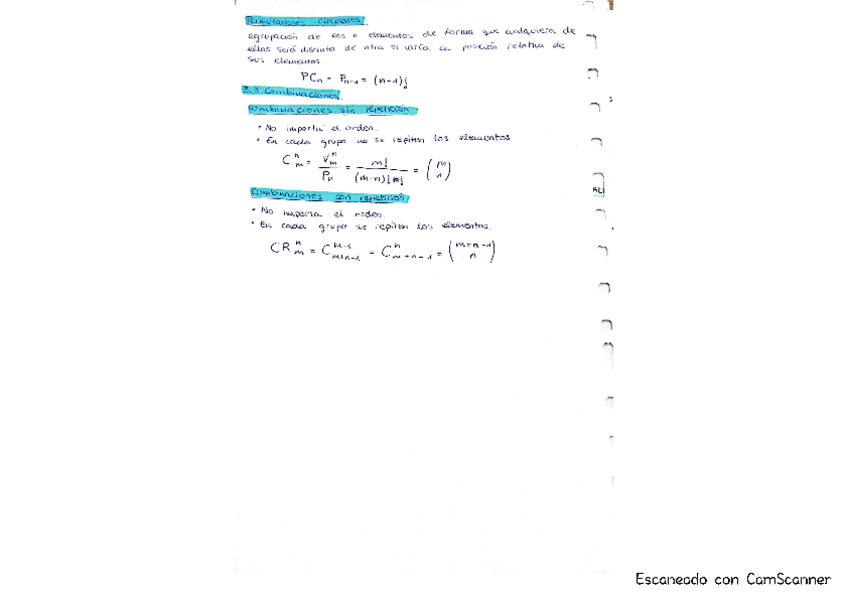 Permutaciones circulares
agrupación de los n elementos de forma que cualquiera de
ellas será distinta de otra si varía la posición relativa de
sus elementos
PCn = Pn-1 = (n-1)!
2.3 Combinaciones
Combinaciones sin repetición
• No importa el orden.
• En cada grupo no se repiten los elementos
C n m = V n m / Pn = m! / (m-n)! n! = (m n)
Combinaciones con repetición
• No importa el orden.
• En cada grupo se repiten los elementos.
CR n m = C m-1 m+n-1 = C n m+n-1 = (m+n-1 n)
AL
Escaneado con CamScanner